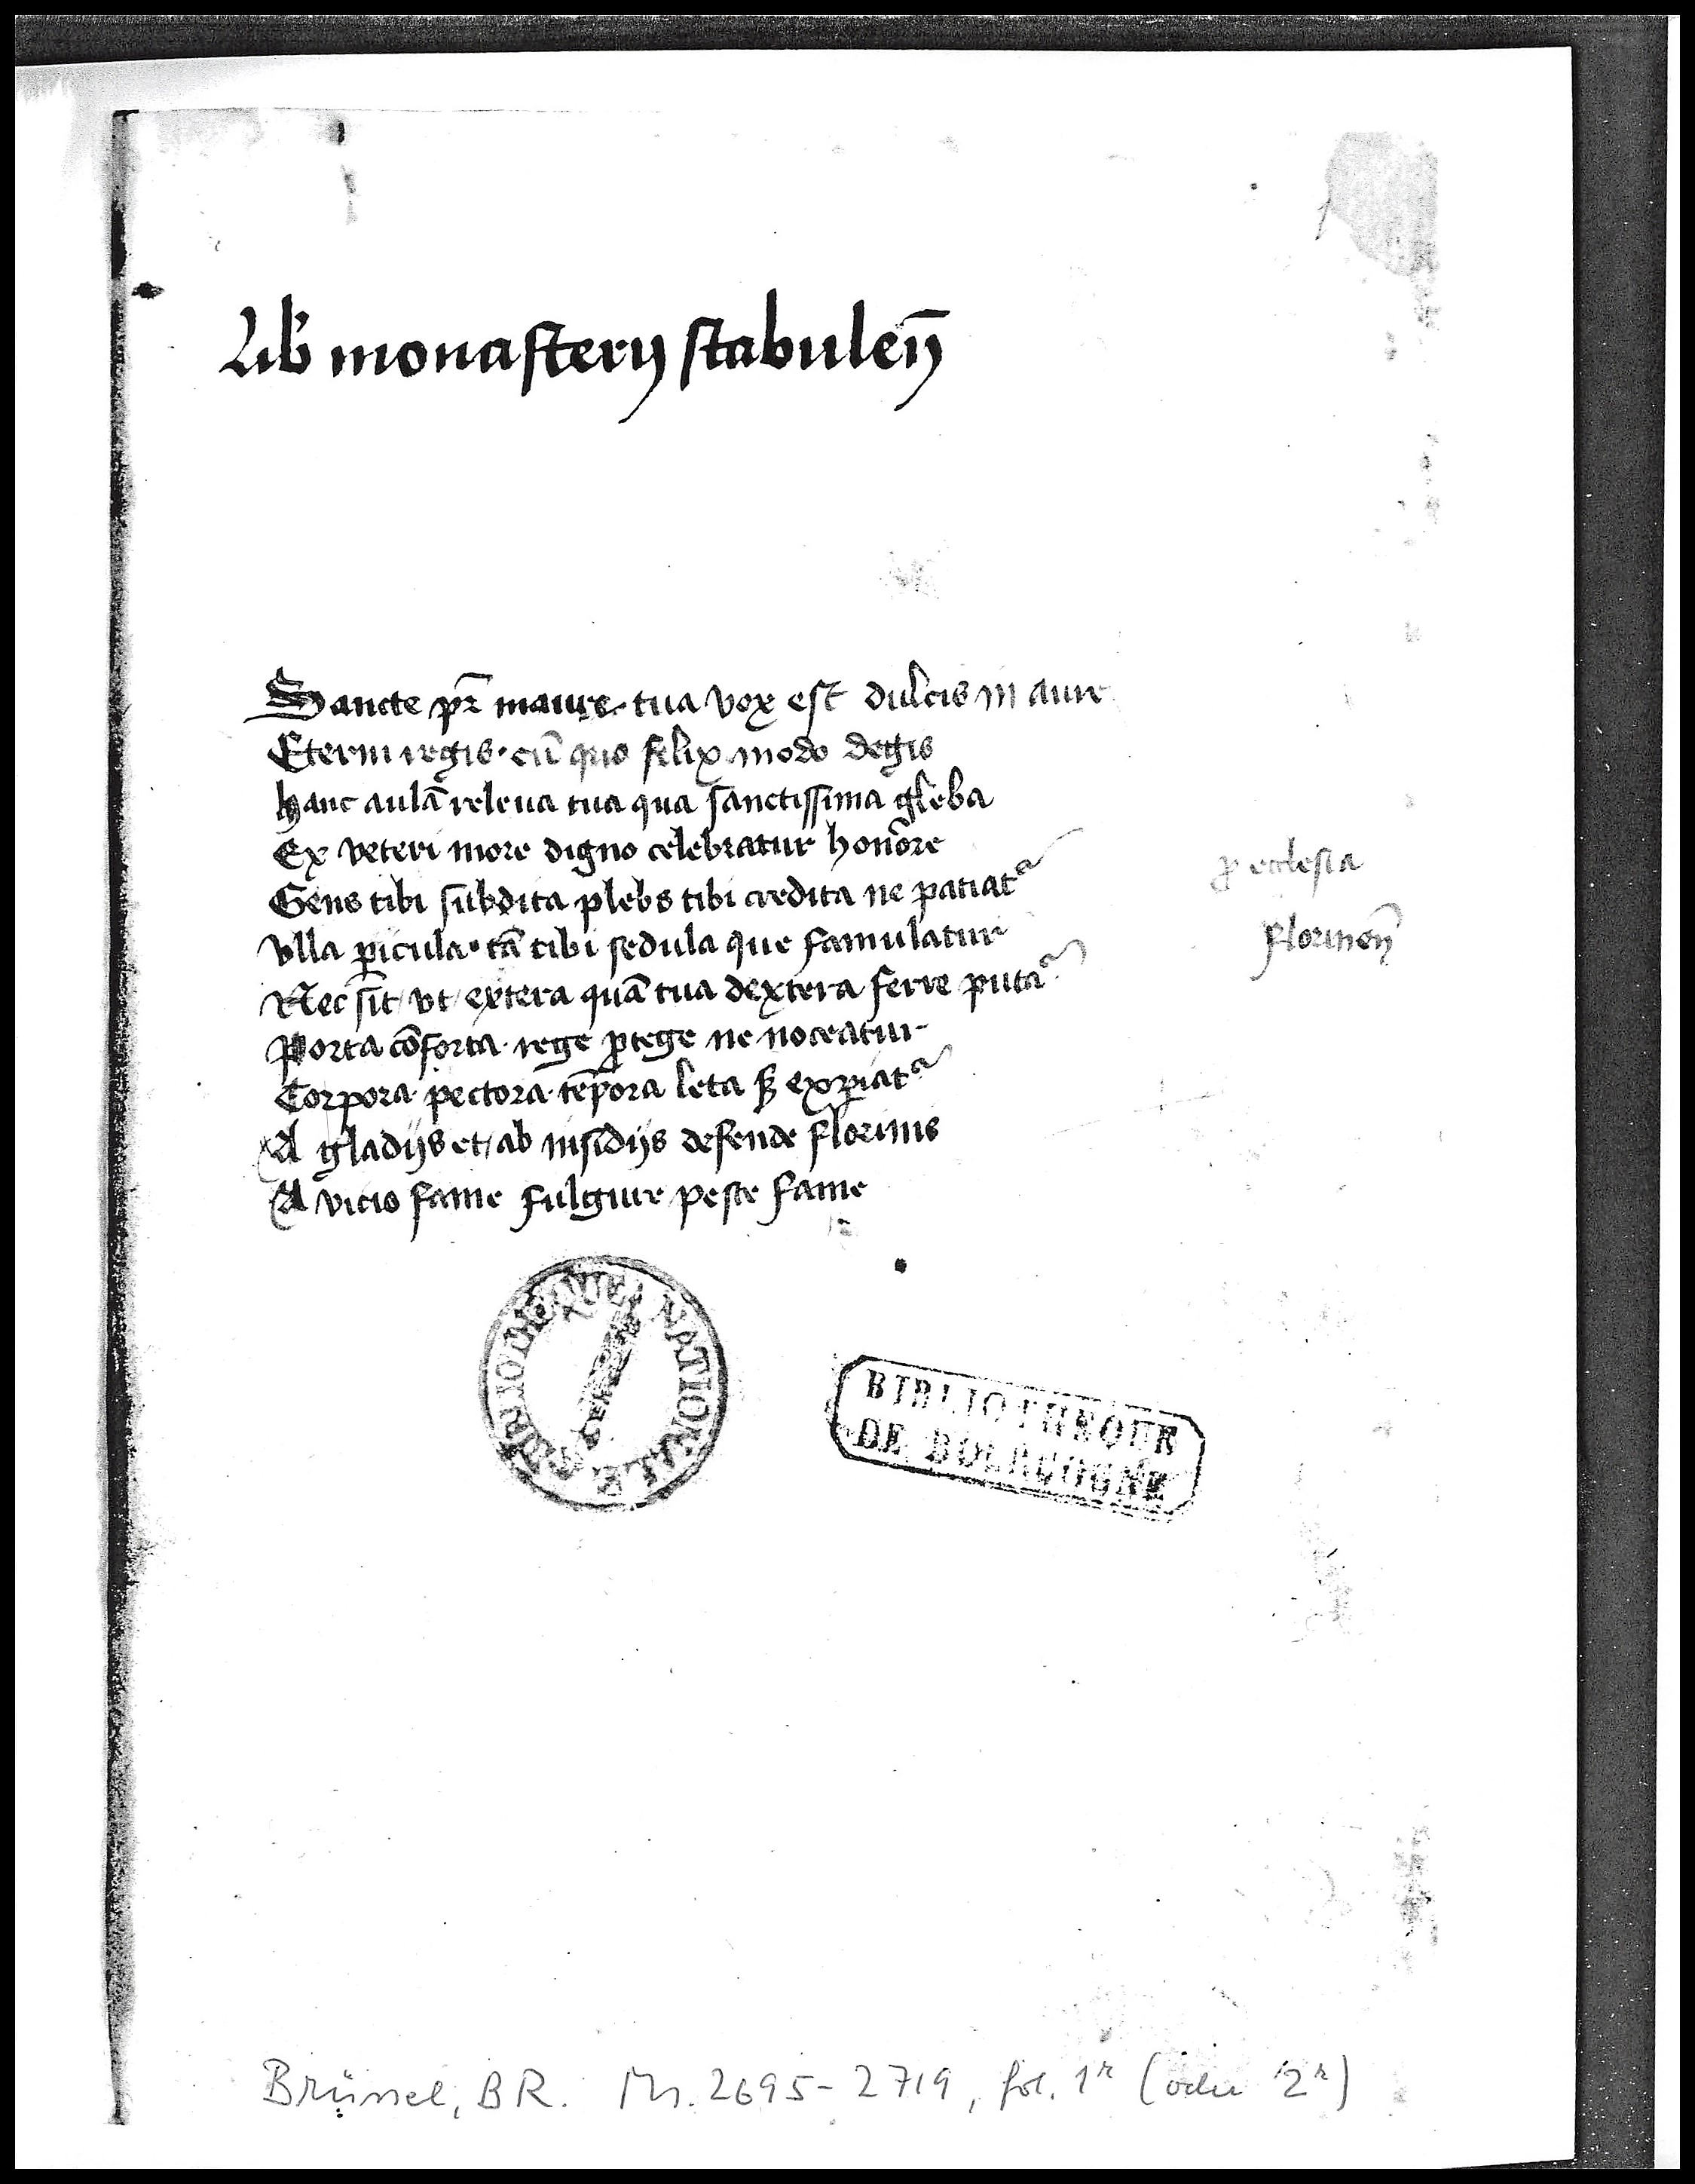 Lib monasterij stabulen̄
Sancte pr̄ maure. tua vox est dulcis in aure
Eterni regis. cū quo felix modo degis
hanc aulā releua tua qua sanctissima gleba
Ex veteri more digno celebratur honore
Gens tibi subdita plebs tibi credita ne patiatᷣ
ꝓ ecclesia
Vlla ꝑicula. tā tibi sedula que famulatur
florinen̄
Nec sit / vt / extera quā tua dextera ferre putaᷣ
Porta cōforta. rege ꝓtege ne noceatur
Corpora. pectora. tēpora leta sꝫ exꝑiatᷣ
A gladijs et / ab insidijs defende florinis
A vicio fame fulgure peste fame
BIBLIOTHEQUE NATIONALE
BIBLIOTHEQUE
DE BOURGOGNE
Brüssel, BR. Ms. 2695-2719, fol. 1r (oder 2r)